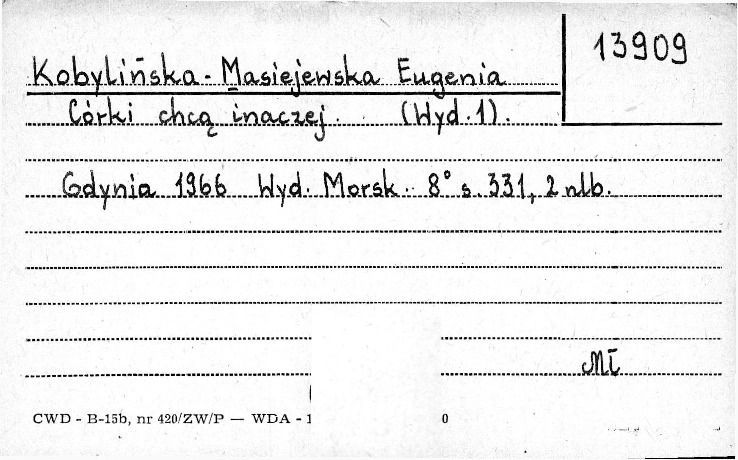 13909
Kobylińska-Masiejewska Eugenia
Córki chcą inaczej. (Wyd.1).
Gdynia 1966 Wyd. Morsk. 8° s. 331, 2 nlb.
CWD - B-15b, nr 420/ZW/P — WDA - 1 0